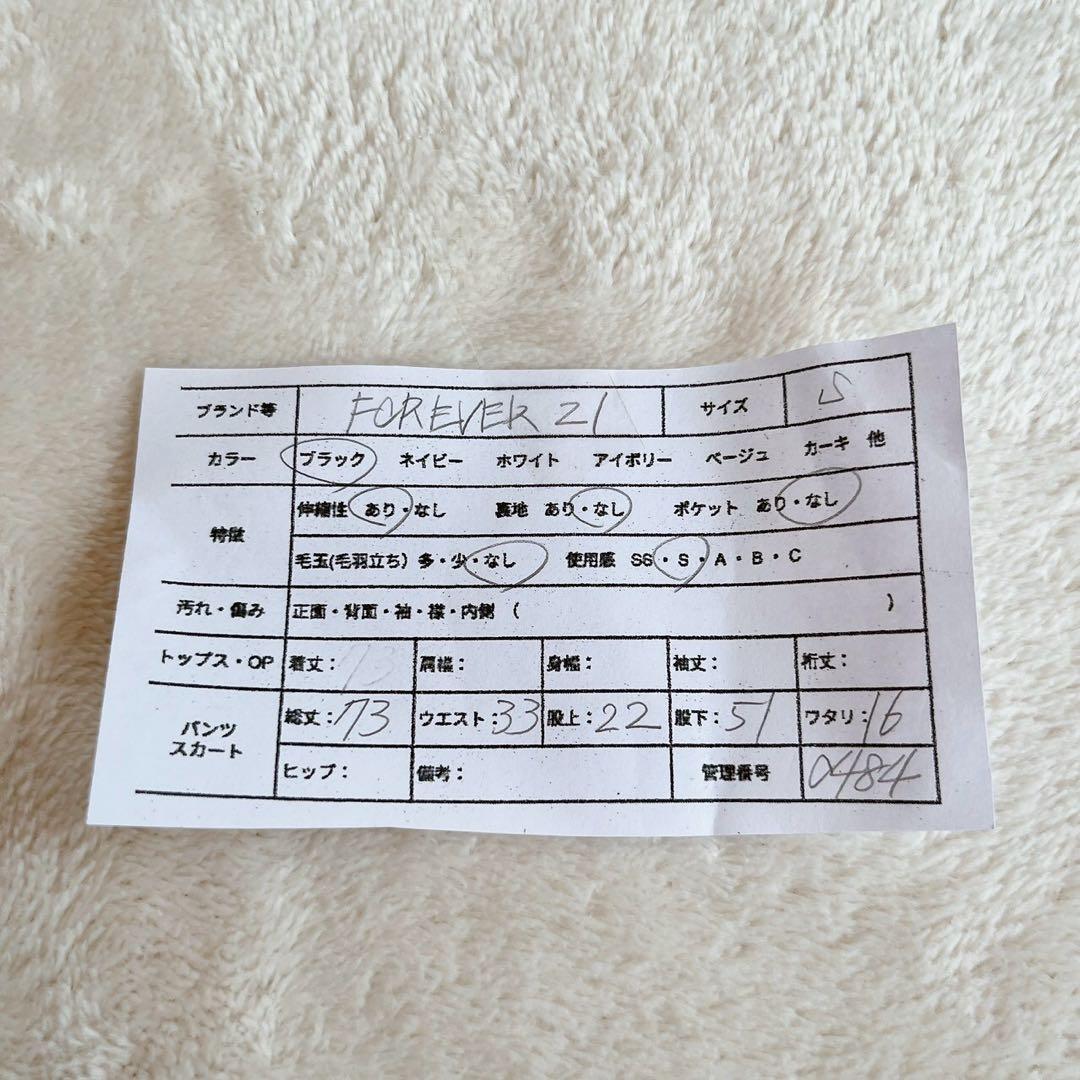 ブランド等 FOREVER 21 サイズ S
カラー ブラック ネイビー ホワイト アイボリー ベージュ カーキ 他
特徴 伸縮性 あり・なし 裏地 あり・なし ポケット あり・なし
毛玉(毛羽立ち) 多・少・なし 使用感 SS・S・A・B・C
汚れ・傷み 正面・背面・袖・襟・内側 ( )
トップス・OP 着丈: 73 肩幅: 身幅: 袖丈: 裄丈:
パンツ スカート 総丈:73 ウエスト:33 股上:22 股下:51 ワタリ:16
ヒップ: 備考: 管理番号 α484